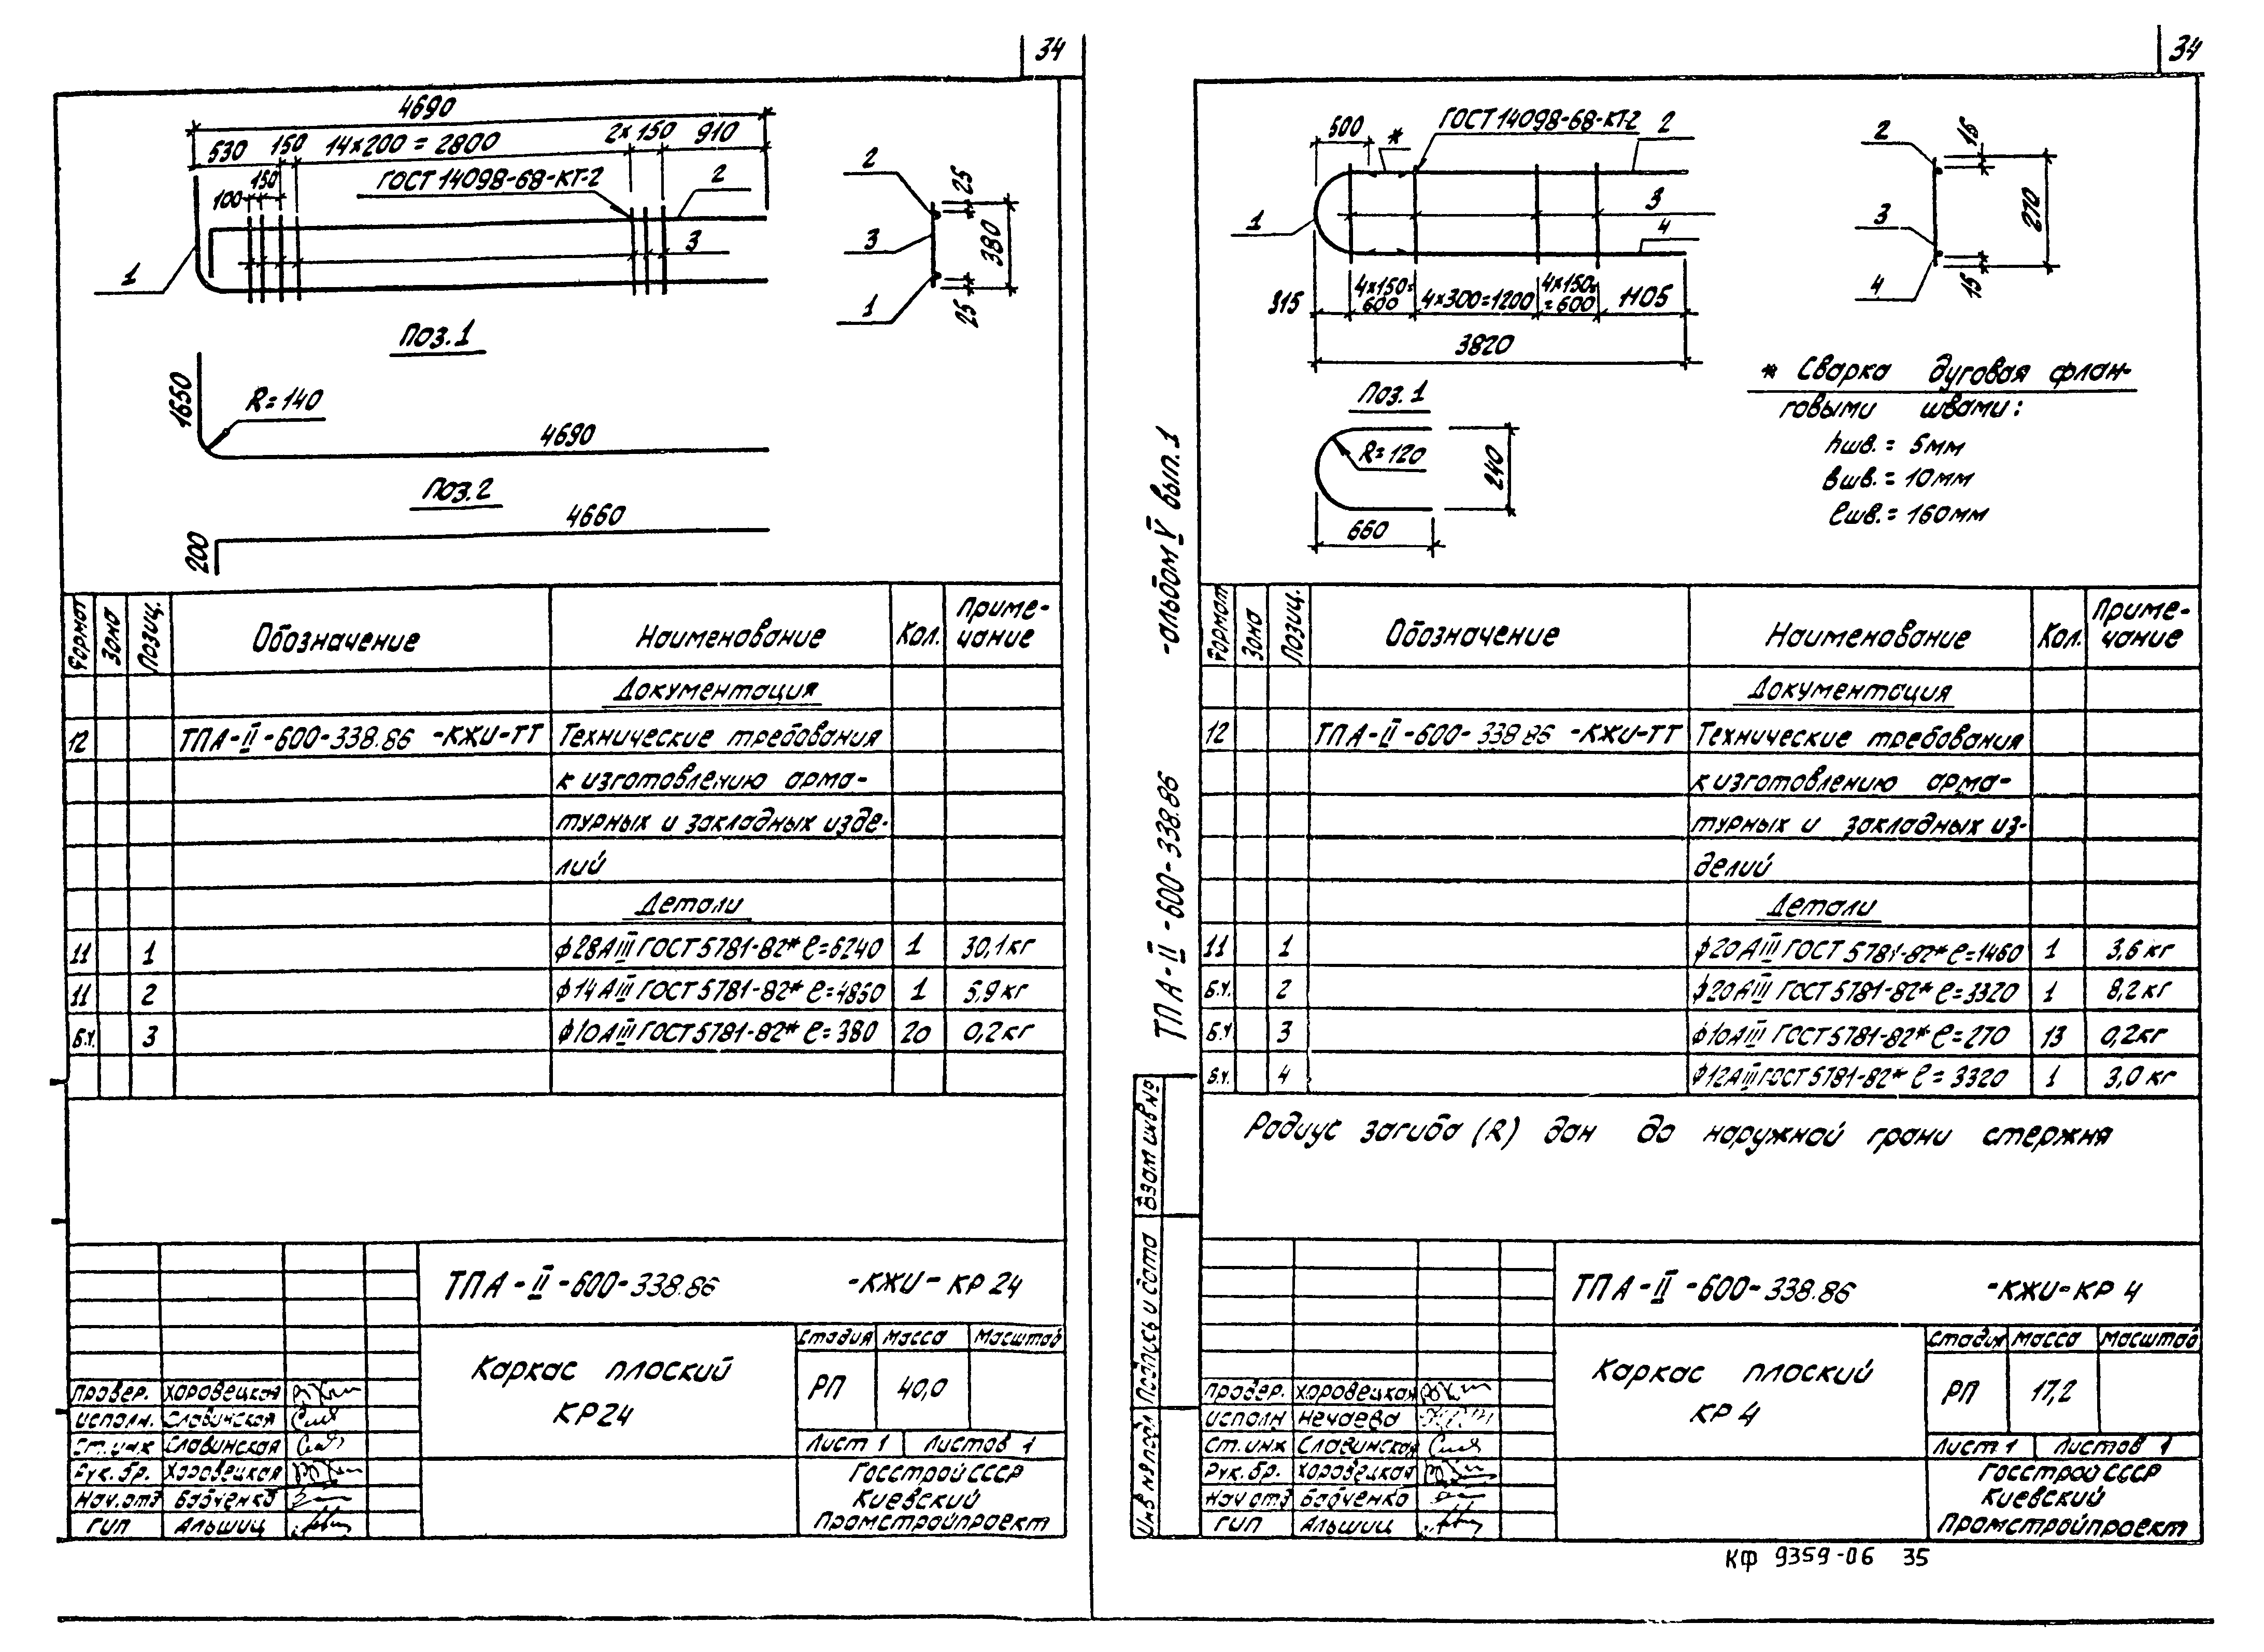 34
4690
530 150 14×200 = 2800 2×150 910
100 150
ГОСТ 14098-68-КТ-2
2
3
1
2
3
1
25
380
25
Поз.1
1650
R=140
4690
Поз.2
4660
200
Формат Зона Позиц. Обозначение Наименование Кол. Приме-
чание
Документация
12 ТПА-II-600-338.86 -КЖИ-ТТ Технические требования
к изготовлению арма-
турных и закладных изде-
лий
Детали
11 1 ф28АIII ГОСТ 5781-82* ℓ=6240 1 30,1кг
11 2 ф14АIII ГОСТ 5781-82* ℓ=4850 1 5,9кг
Б.ч. 3 ф10АIII ГОСТ 5781-82* ℓ=380 20 0,2кг
ТПА-II-600-338.86 -КЖИ-КР 24
Каркас плоский
КР24
Стадия Масса Масштаб
РП 40,0
Лист 1 Листов 1
Госстрой СССР
Киевский
Промстройпроект
Провер. Хоровецкая
Исполн. Славинская
Ст.инж Славинская
Рук. бр. Хоровецкая
Нач.отд Бабченко
ГИП Альшиц
34
500 *
ГОСТ 14098-68-КТ-2 2
3
1
4
315 4×150=
600 4×300=1200 4×150=
=600 1105
3820
2
3
4
15
270
15
Поз. 1
R=120
240
660
* Сварка дуговая флан-
говыми швами:
hшв. = 5мм
вшв. = 10мм
ℓшв. = 160мм
ТПА-II-600-338.86 -альбом V вып.1
Формат Зона Позиц. Обозначение Наименование Кол. Приме-
чание
Документация
12 ТПА-II-600-338.86 -КЖИ-ТТ Технические требования
к изготовлению арма-
турных и закладных из-
делий
Детали
11 1 ф20АIII ГОСТ 5781-82* ℓ=1460 1 3,6кг
Б.ч. 2 ф20АIII ГОСТ 5781-82* ℓ=3320 1 8,2кг
Б.ч. 3 ф10АIII ГОСТ 5781-82* ℓ=270 13 0,2кг
Б.ч. 4 ф12АIII ГОСТ 5781-82* ℓ=3320 1 3,0кг
Радиус загиба (R) дан до наружной грани стержня
Взам инв №
Подпись и дата
Инв № подл
ТПА-II-600-338.86 -КЖИ-КР 4
Каркас плоский
КР 4
Стадия Масса Масштаб
РП 17,2
Лист 1 Листов 1
Госстрой СССР
Киевский
Промстройпроект
Провер. Хоровецкая
Исполн Нечаева
Ст.инж Славинская
Рук. бр. Хоровецкая
Нач отд Бабченко
ГИП Альшиц
КФ 9359-06 35